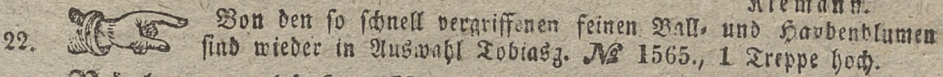 Riemann.
22. Von den so schnell vergriffenen feinen Ball- und Haubenblumen
sind wieder in Auswahl Tobiasg. № 1565., 1 Treppe hoch.